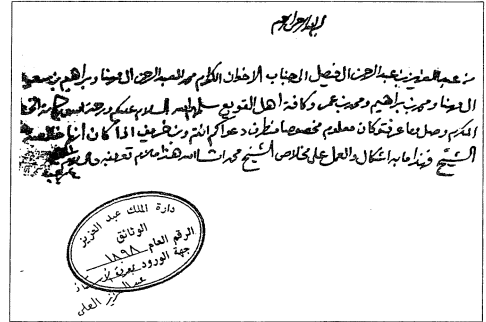 بسم الله الرحمن الرحيم
من عبد العزيز بن عبد الرحمن ال فيصل الى جناب الاخوان الكرام محمد العبد الرحمن ال مهنا وبراهيم بن سعود
ال مهنا ومحمد بن براهيم ومحمد بن عمر وكافة اهل القويع سلمهم الله السلام عليكم ورحمة الله وبركاته
المكرم وصل وما عرفتو كان معلوم مخصوصا من طرف دعواكم انتم وبن خريف اذا كان
الشيخ فهذا ما به اشكال والعمل على خلاص الشيخ محمد ان شاء الله هذا ما لزم تعريفه والسلام
دارة الملك عبد العزيز
الوثائق
الرقم العام ١٨٩٨
جهة الورود
عبد العزيز العلي